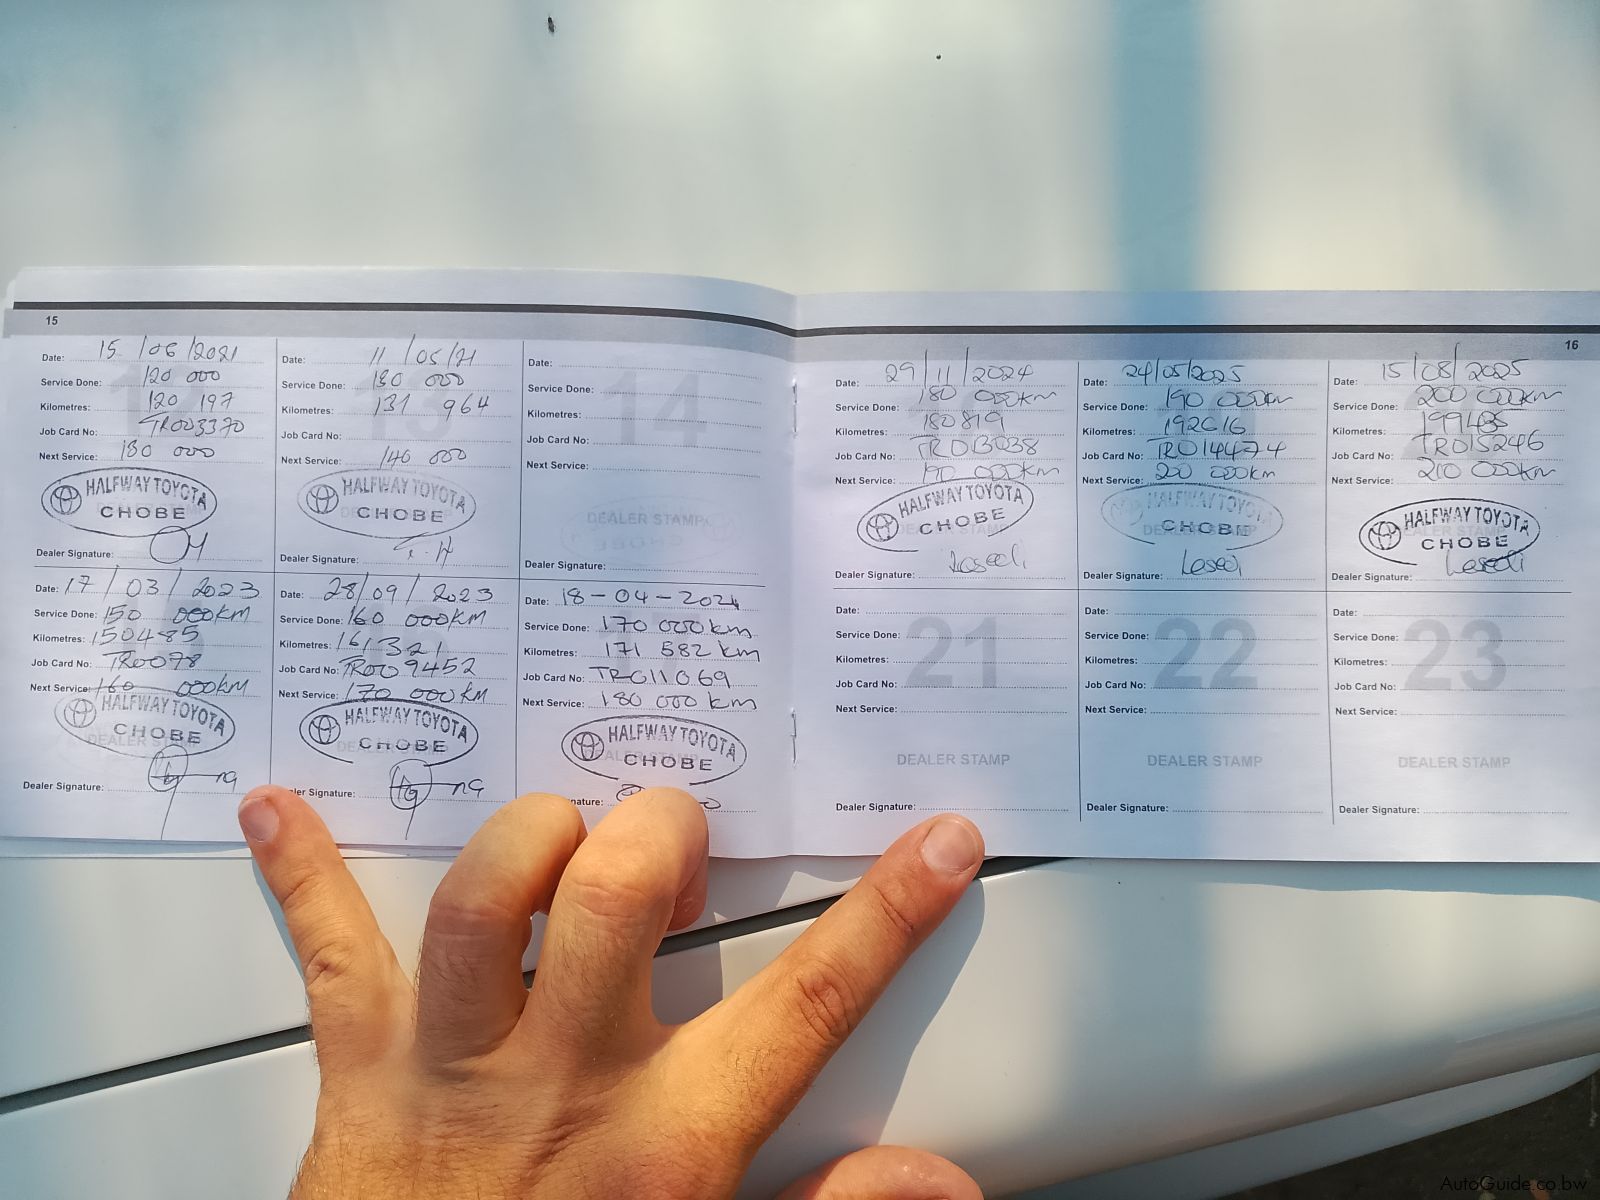 15
Date: 15 / 06 / 2021
Service Done: 120 000
Kilometres: 120 197
Job Card No: TR003370
Next Service: 130 000
HALFWAY TOYOTA
CHOBE
Dealer Signature:
Date: 11 / 05 / 21
Service Done: 130 000
Kilometres: 131 964
Job Card No:
Next Service: 140 000
HALFWAY TOYOTA
CHOBE
Dealer Signature: T.H
14
Date:
Service Done:
Kilometres:
Job Card No:
Next Service:
DEALER STAMP
Dealer Signature:
Date: 17 / 03 / 2023
Service Done: 150 000KM
Kilometres: 150485
Job Card No: TR0078
Next Service: 160 000KM
HALFWAY TOYOTA
CHOBE
DEALER STAMP
Dealer Signature:
Date: 28/09/2023
Service Done: 160 000KM
Kilometres: 161321
Job Card No: TR009452
Next Service: 170 000KM
HALFWAY TOYOTA
CHOBE
Dealer Signature:
Date: 18-04-2024
Service Done: 170 000km
Kilometres: 171 582 km
Job Card No: TR011069
Next Service: 180 000 km
HALFWAY TOYOTA
CHOBE
16
Date: 29/11/2024
Service Done: 180 000km
Kilometres: 180819
Job Card No: TR013038
Next Service: 190 000km
HALFWAY TOYOTA
CHOBE
Dealer Signature: Lesedi
Date: 24/05/2025
Service Done: 190 000km
Kilometres: 192616
Job Card No: TR014474
Next Service: 200 000km
HALFWAY TOYOTA
CHOBE
Dealer Signature: Lesedi
Date: 15/08/2025
Service Done: 200 000km
Kilometres: 199485
Job Card No: TR015246
Next Service: 210 000km
HALFWAY TOYOTA
CHOBE
Dealer Signature: Lesedi
21
Date:
Service Done:
Kilometres:
Job Card No:
Next Service:
DEALER STAMP
Dealer Signature:
22
Date:
Service Done:
Kilometres:
Job Card No:
Next Service:
DEALER STAMP
Dealer Signature:
23
Date:
Service Done:
Kilometres:
Job Card No:
Next Service:
DEALER STAMP
Dealer Signature:
AutoGuide.co.bw